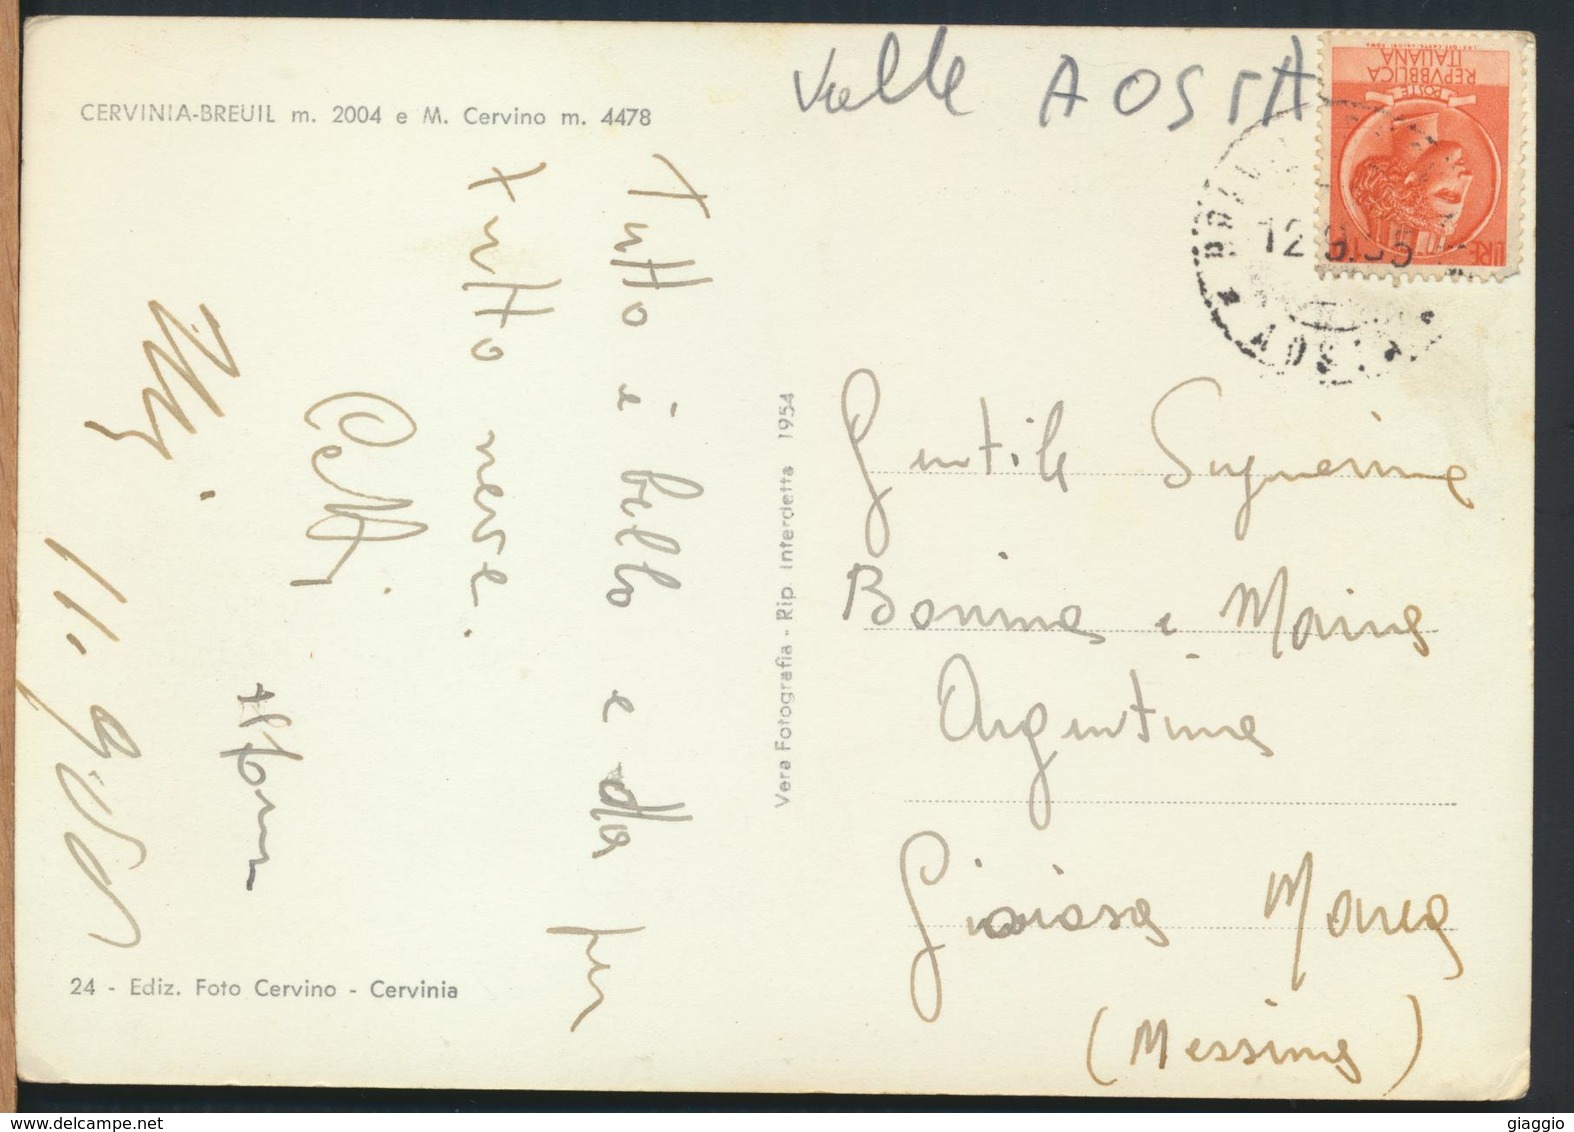 Valle AOSTA
CERVINIA-BREUIL m. 2004 e M. Cervino m. 4478
POSTE
REPVBBLICA
ITALIANA
LIRE
12.9.55
AOSTA
Tutto è bello e da per
tutto neve.
11.9.55
Vera Fotografia - Rip. Interdetta 1954
Gentile Signorina
Bonina e Maria
Argentina
Gioiosa Marea
(Messina)
24 - Ediz. Foto Cervino - Cervinia
giaggio